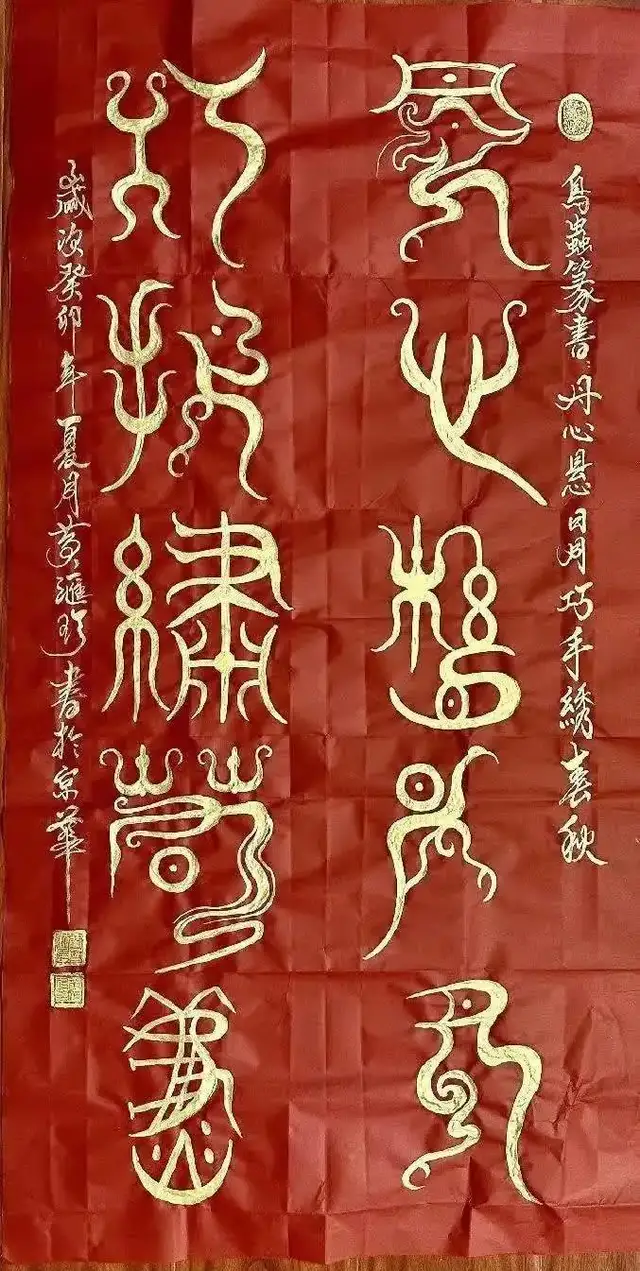 鳥蟲篆書：丹心悬日月巧手綉春秋
丹心懸日月
巧手繡春秋
歲次癸卯年夏月黃滙珍書於京華